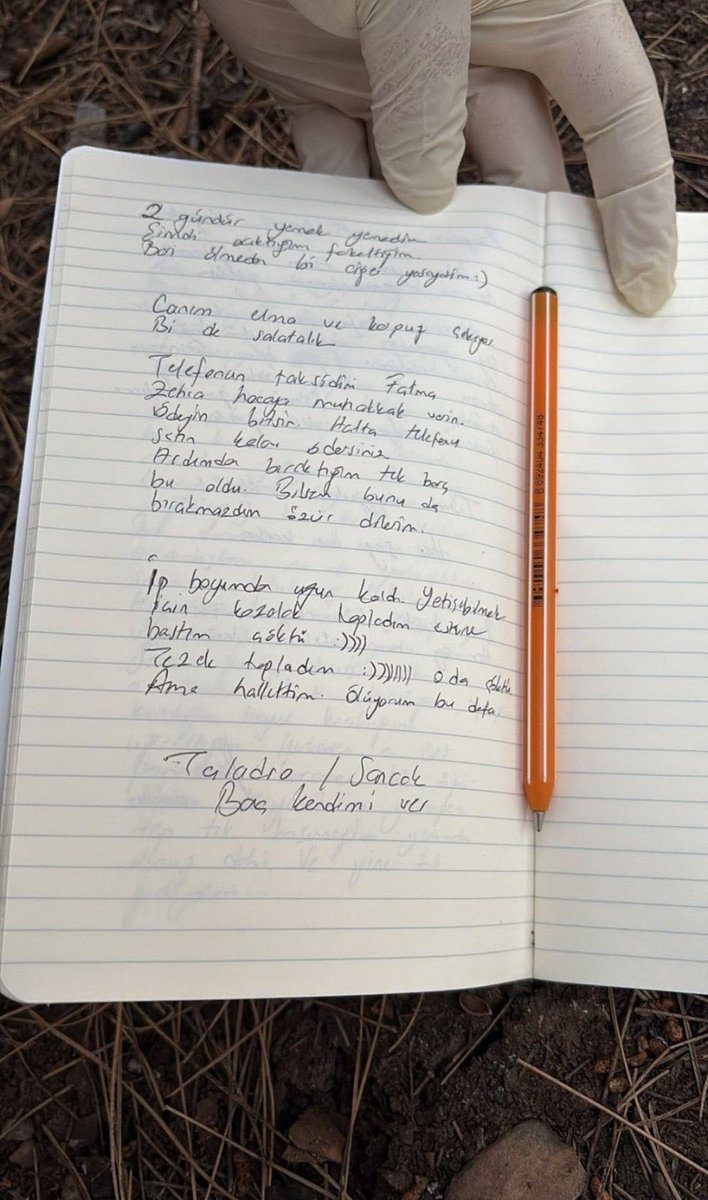 2 gündür yemek yemedim
Şimdi acıktığım farkettiğim
Ben ölmeden bi ciğer yaseydim :)
Canım elma ve karpuz çekiyor
Bi de salatalık
Telefonun taksidini Fatma
Zehra hocaya muhakkak verin.
Ödeyin bitsin. Hatta telefonu
satın kalanı ödersiniz
Ardımda bıraktığım tek borç
bu oldu. Bilsem bunu da
bırakmazdım özür dilerim.
İp boyumda uzun kaldı. Yetişebilmek
için kozalak topladım üstüne
bastım çöktü :))))
Tezek topladım :))))))))) o da çöktü
Ama hallettim. Ölüyorum bu defa.
Taladro / Sancak
Boş kendimi ver
8 692404 334748